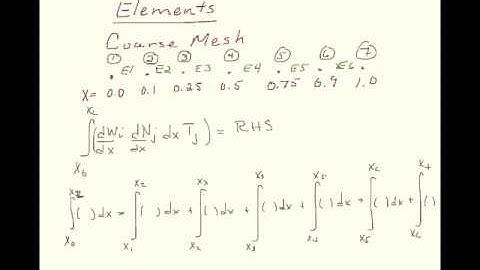 Elements
Coarse Mesh
① ② ③ ④ ⑤ ⑥ ⑦
. E1 . E2 . E3 . E4 . E5 . E6 .
X= 0.0 0.1 0.25 0.5 0.75 0.9 1.0
∫_{X_0}^{X_L} (dWi/dx dNj/dx dx Tj) = RHS
∫_{X_0}^{X_L} ( )dx = ∫_{X_1}^{X_2} ( )dx + ∫_{X_2}^{X_3} ( )dx + ∫_{X_3} ( )dx + ∫_{X_4}^{X_5} ( )dx + ∫_{X_5}^{X_6} ( )dx + ∫_{X_6} ( )